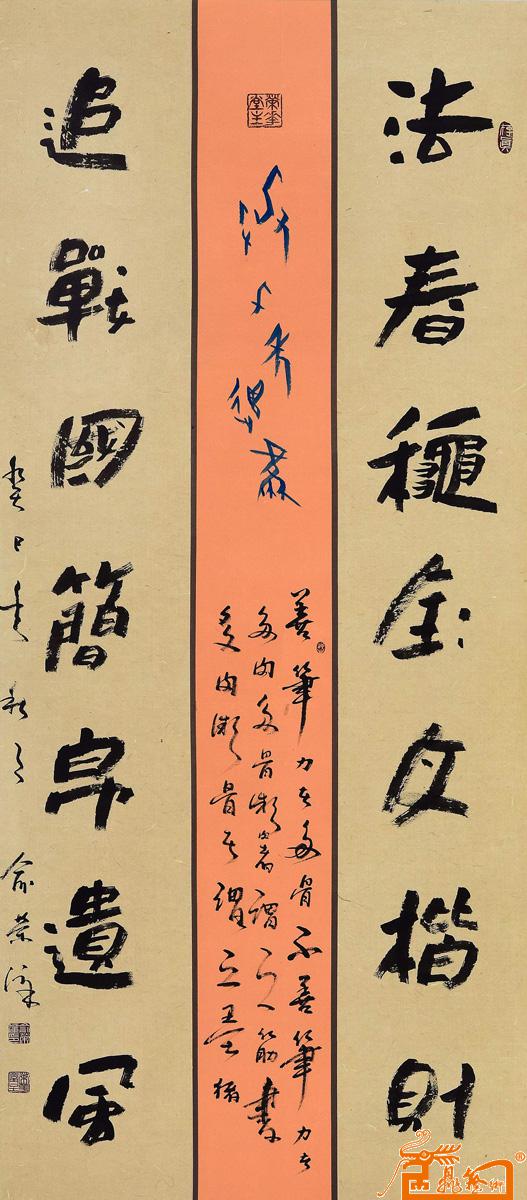 法春穐金文楷則
善筆力者多骨不善筆力者
多肉多骨微肉者謂之筋書
多肉微骨者謂之墨猪
追戰國簡帛遺風
癸巳年秋月
俞榮澤